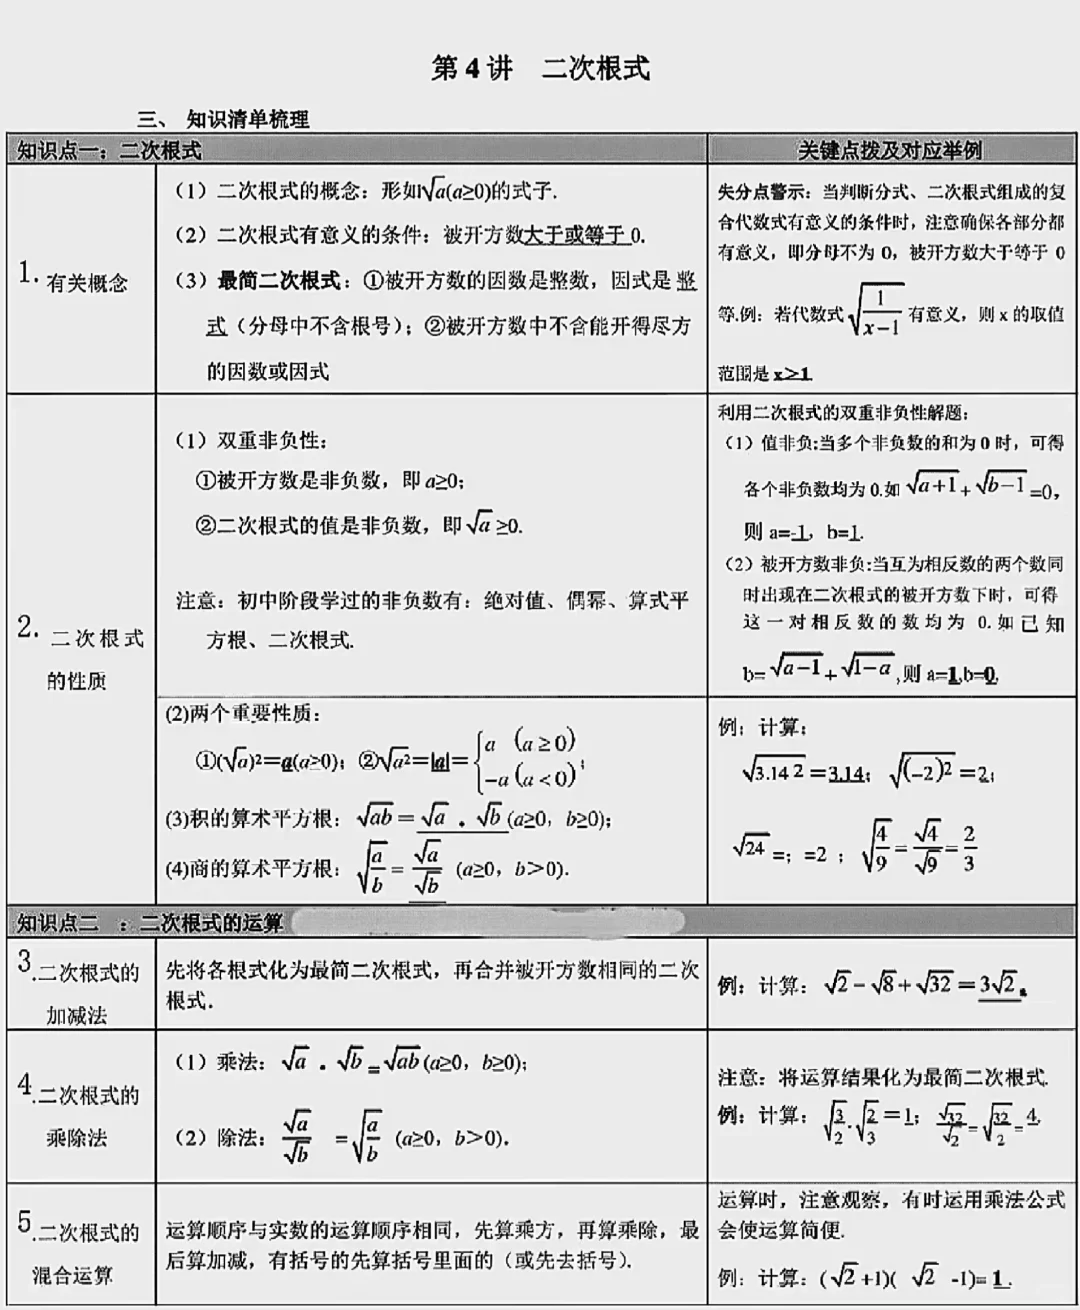 第 4 讲　二次根式
三、 知识清单梳理
知识点一：二次根式
关键点拨及对应举例
1. 有关概念
（1）二次根式的概念：形如√a(a≥0)的式子.
（2）二次根式有意义的条件：被开方数大于或等于 0.
（3）最简二次根式：①被开方数的因数是整数，因式是 整
式（分母中不含根号）；②被开方数中不含能开得尽方
的因数或因式
失分点警示：当判断分式、二次根式组成的复
合代数式有意义的条件时，注意确保各部分都
有意义，即分母不为 0，被开方数大于等于 0
等.例：若代数式√(1/(x−1)) 有意义，则 x 的取值
范围是 x＞1.
2. 二次根式
的性质
（1）双重非负性：
①被开方数是非负数，即 a≥0；
②二次根式的值是非负数，即√a ≥0.
注意：初中阶段学过的非负数有：绝对值、偶幂、算式平
方根、二次根式.
利用二次根式的双重非负性解题：
（1）值非负:当多个非负数的和为 0 时，可得
各个非负数均为 0.如 √(a+1) + √(b−1) =0，
则 a=-1，b=1.
（2）被开方数非负:当互为相反数的两个数同
时出现在二次根式的被开方数下时，可得
这一对相反数的数均为 0.如已知
b= √(a−1) + √(1−a) ,则 a=1,b=0.
(2)两个重要性质：
①(√a)²=a(a≥0)；②√a²=|a|={a (a≥0) −a (a<0)；
(3)积的算术平方根：√ab = √a · √b (a≥0，b≥0)；
(4)商的算术平方根：√(a/b) = √a/√b (a≥0，b＞0).
例：计算：
√3.14² =3.14；√(−2)² =2；
√24 =；=2 ；√(4/9) = √4/√9 = 2/3
知识点二 ：二次根式的运算
3.二次根式的
加减法
先将各根式化为最简二次根式，再合并被开方数相同的二次
根式.
例：计算：√2−√8+√32＝3√2.
4.二次根式的
乘除法
（1）乘法：√a · √b = √ab (a≥0，b≥0)；
（2）除法：√a/√b =√(a/b) (a≥0，b＞0).
注意：将运算结果化为最简二次根式.
例：计算：√(3/2)·√(2/3)＝1；√32/√2=√(32/2)=4.
5.二次根式的
混合运算
运算顺序与实数的运算顺序相同，先算乘方，再算乘除，最
后算加减，有括号的先算括号里面的（或先去括号）.
运算时，注意观察，有时运用乘法公式
会使运算简便.
例：计算：(√2+1)( √2 -1)= 1 .